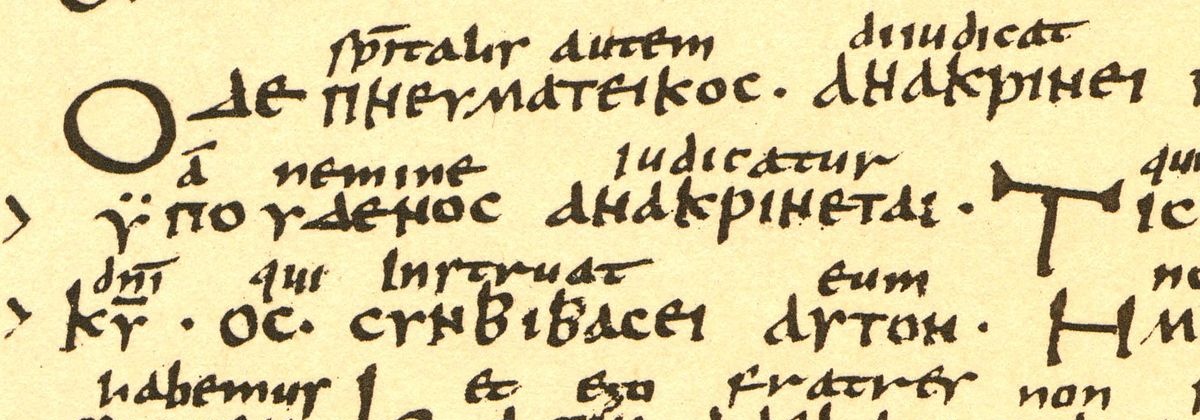 sp̅italis autem diiudicat
Ο ΔΕ ΠΝΕΥΜΑΤΕΙΚΟC · ΑΝΑΚΡΙΝΕΙ
a̅ nemine iudicatur qui
ΫΠΟΥΔΕΝΟC ΑΝΑΚΡΙΝΕΤΑΙ · ΤΙC
dn̅i qui instruat eum
ΚΥ̅ · ΟC · CΥΝΒΙΒΑCΕΙ ΑΥΤΟΝ · ΗΜ
habemus et ego fratres non